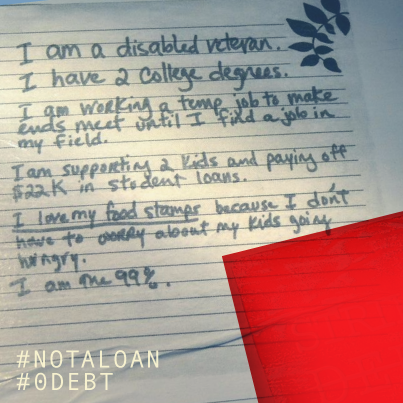 I am a disabled veteran.
I have 2 College degrees.
I am working a temp job to make
ends meet until I find a job in
my field.
I am supporting 2 kids and paying off
$22K in student loans.
I love my food stamps because I don't
have to worry about my kids going
hungry.
I am the 99%.
#NOTALOAN
#0DEBT